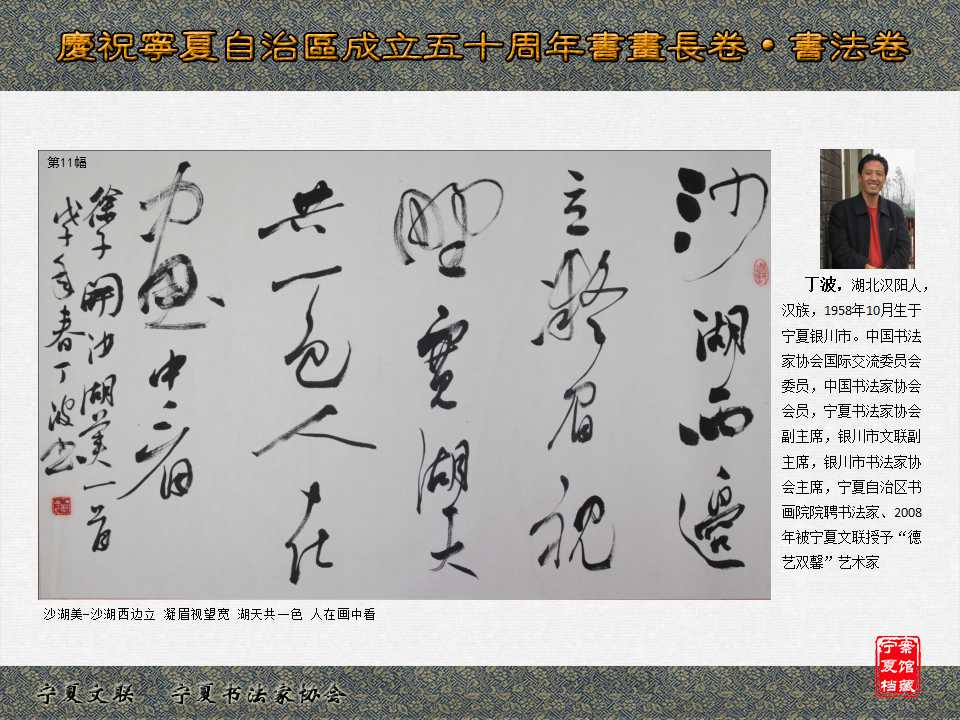 慶祝寧夏自治區成立五十周年書畫長卷·書法卷
第11幅
沙湖西邊
立凝眉視
望寬湖天
共一色人在
画中看
徐子開沙湖美一首
戊子年春丁波书
丁波，湖北汉阳人，
汉族，1958年10月生于
宁夏银川市。中国书法
家协会国际交流委员会
委员，中国书法家协会
会员，宁夏书法家协会
副主席，银川市文联副
主席，银川市书法家协
会主席，宁夏自治区书
画院院聘书法家、2008
年被宁夏文联授予“德
艺双馨”艺术家
沙湖美-沙湖西边立 凝眉视望宽 湖天共一色 人在画中看
宁夏文联 宁夏书法家协会
宁夏档案馆藏